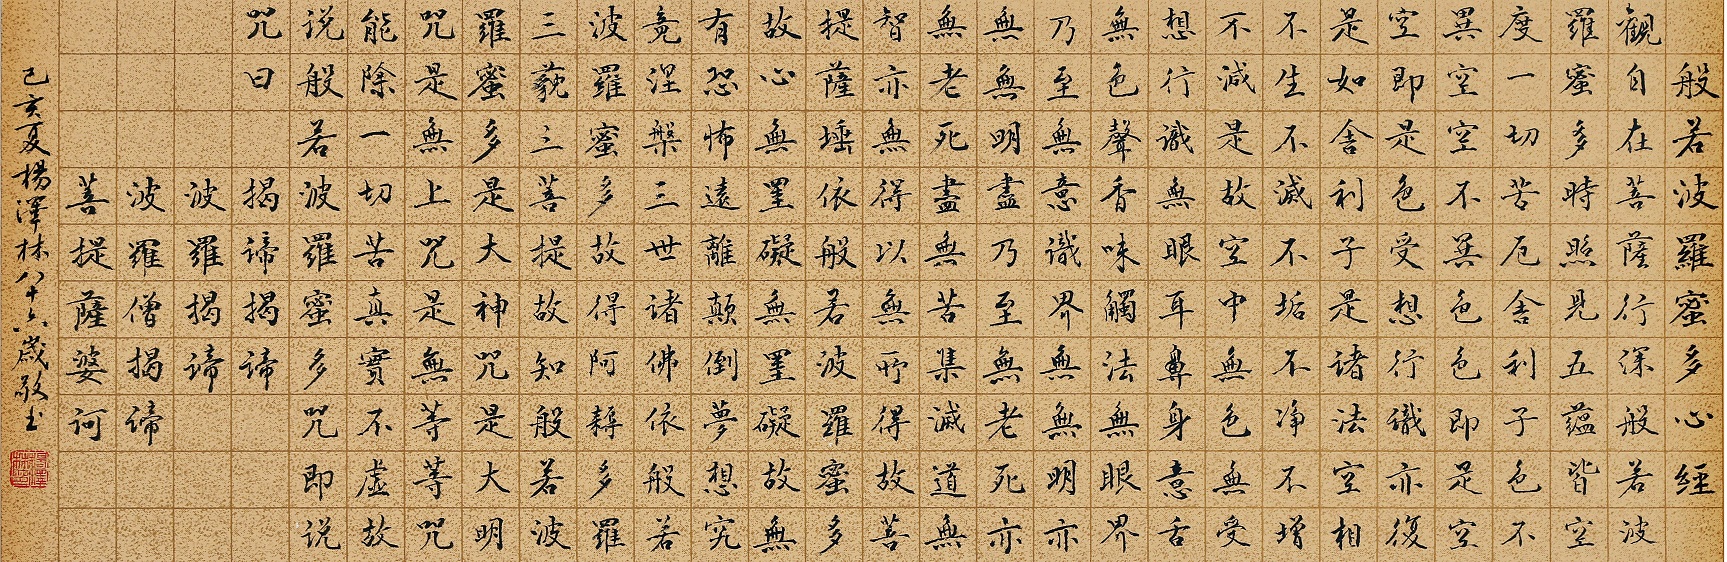 般若波羅蜜多心經
觀自在菩薩行深般若波
羅蜜多時照見五蘊皆空
度一切苦厄舍利子色不
異空空不異色色即是空
空即是色受想行識亦復
是如舍利子是诸法空相
不生不滅不垢不净不增
不減是故空中無色無受
想行識無眼耳鼻身意舌
無色聲香味觸法無眼界
乃至無意識界無無明亦
無無明盡乃至無老死亦
無老死盡無苦集滅道無
智亦無得以無所得故菩
提薩埵依般若波羅蜜多
故心無罣礙無罣礙故無
有恐怖遠離顛倒夢想究
竟涅槃三世诸佛依般若
波羅蜜多故得阿耨多羅
三藐三菩提故知般若波
羅蜜多是大神咒是大明
咒是無上咒是無等等咒
能除一切苦真實不虚故
说般若波羅蜜多咒即说
咒曰 揭諦揭諦
波羅揭諦
波羅僧揭諦
菩提薩婆訶
己亥夏楊澤林八十六歲敬书